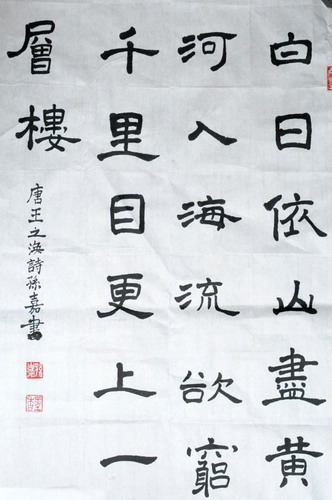 白日依山盡黄
河入海流欲窮
千里目更上一
層樓
唐王之渙詩孫嘉書